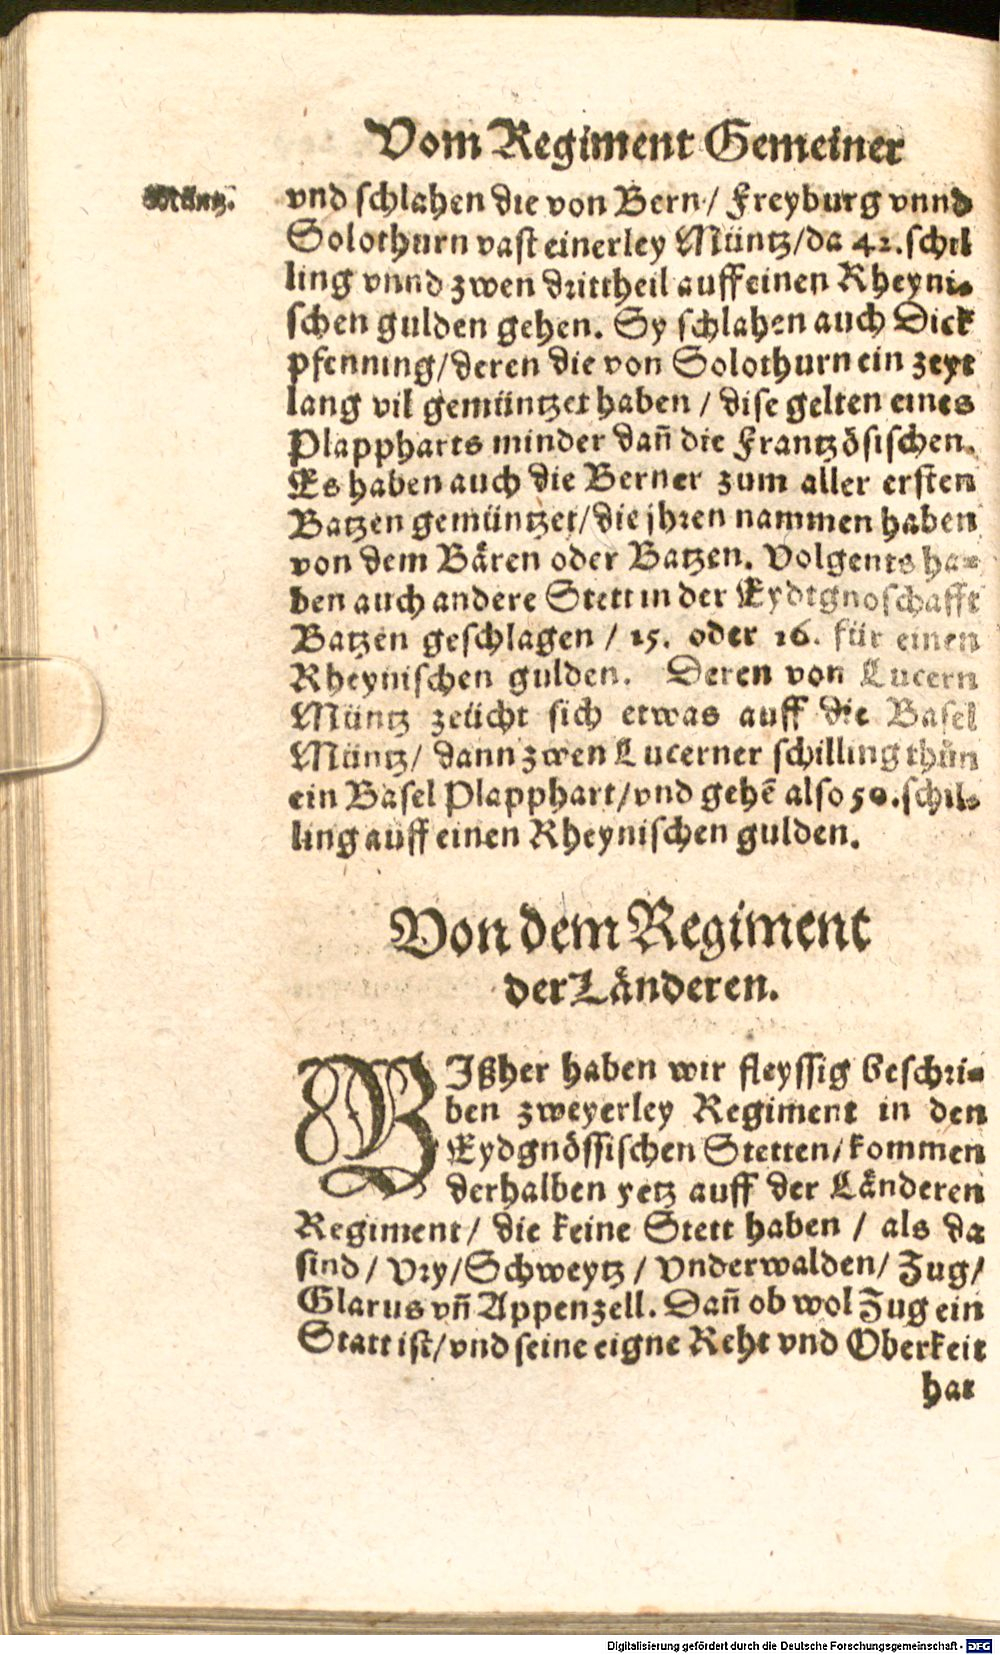 Vom Regiment Gemeiner
Müntz.
vnd schlahen die von Bern / Freyburg vnnd
Solothurn vast einerley Müntz / da 42. schil
ling vnnd zwen drittheil auff einen Rheyni-
schen gulden gehen. Sy schlahen auch Dick
pfenning / deren die von Solothurn ein zeyt
lang vil gemüntzet haben / dise gelten eines
Plappharts minder dañ die Frantzösischen.
Es haben auch die Berner zum aller ersten
Batzen gemüntzet / die jhren nammen haben
von dem Bären oder Batzen. Volgents ha-
ben auch andere Stett in der Eydtgnoschafft
Batzen geschlagen / 15. oder 16. für einen
Rheynischen gulden. Deren von Lucern
Müntz zeücht sich etwas auff die Basel
Müntz / dann zwen Lucerner schilling thůn
ein Basel Plapphart / vnd gehē also 50. schil-
ling auff einen Rheynischen gulden.
Von dem Regiment
der Länderen.
BIßher haben wir fleyssig beschri-
ben zweyerley Regiment in den
Eydgnössischen Stetten / kommen
derhalben yetz auff der Länderen
Regiment / die keine Stett haben / als da
sind / Vry / Schweytz / Vnderwalden / Zug /
Glarus vñ Appenzell. Dañ ob wol Zug ein
Statt ist / vnd seine eigne Reht vnd Oberkeit
hat
Digitalisierung gefördert durch die Deutsche Forschungsgemeinschaft - DFG